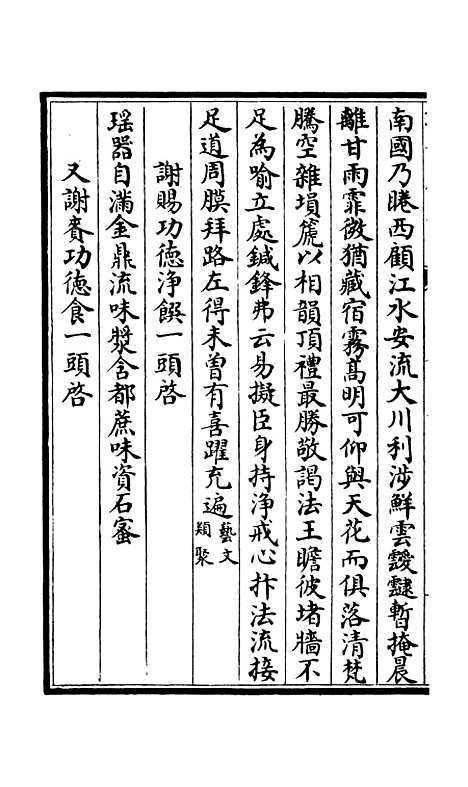 南國乃睠西顧江水安流大川利涉鮮雲靉靆暫掩晨
離甘雨霏微猶藏宿霧髙明可仰與天花而俱落清梵
騰空雜塤箎以相韻頂禮最勝敬謁法王瞻彼堵牆不
足為喻立處鍼鋒弗云易擬臣身持淨戒心抃法流接
足道周膜拜路左得未曾有喜躍充遍藝文類聚
謝賜功德淨饌一頭啓
瑶器自滿金鼎流味漿含都蔗味資石蜜
又謝賚功德食一頭啓